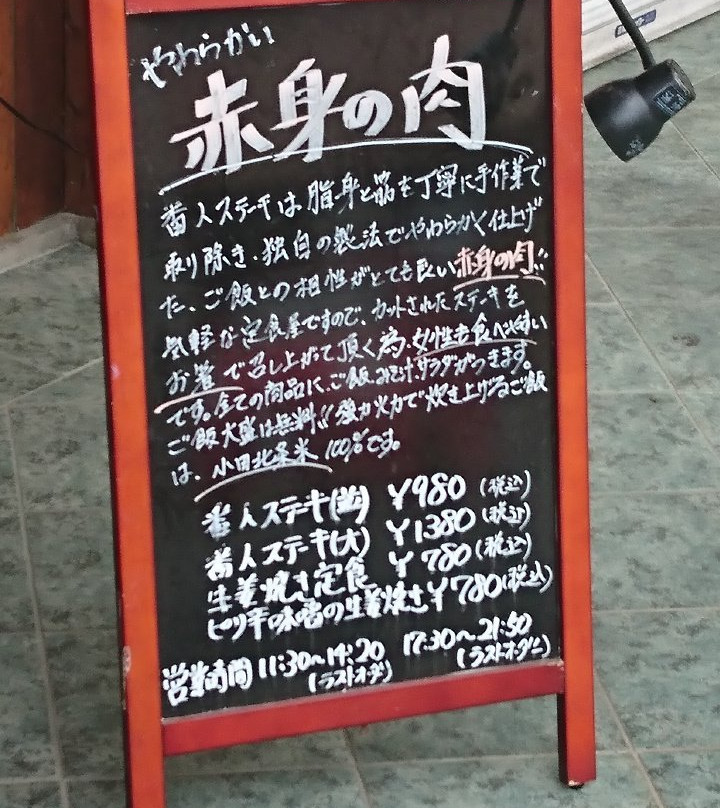 やわらかい
赤身の肉
番人ステーキは脂身と筋を丁寧に手作業で
取り除き、独自の製法でやわらかく仕上げ
た、ご飯との相性がとても良い赤身の肉!!
気軽な定食屋ですので、カットされたステーキを
お箸で召し上がって頂く為、女性も食べやすい
です。全ての商品に、ご飯、みそ汁、サラダがつきます。
ご飯大盛は無料!!強力火力で炊き上げるご飯
は、小田北条米100%です。
番人ステーキ(並) ¥980(税込)
番人ステーキ(大) ¥1380(税込)
生姜焼き定食 ¥780(税込)
ピリ辛味噌の生姜焼き¥780(税込)
営業時間 11:30~14:20 17:30~21:50
(ラストオーダー) (ラストオーダー)